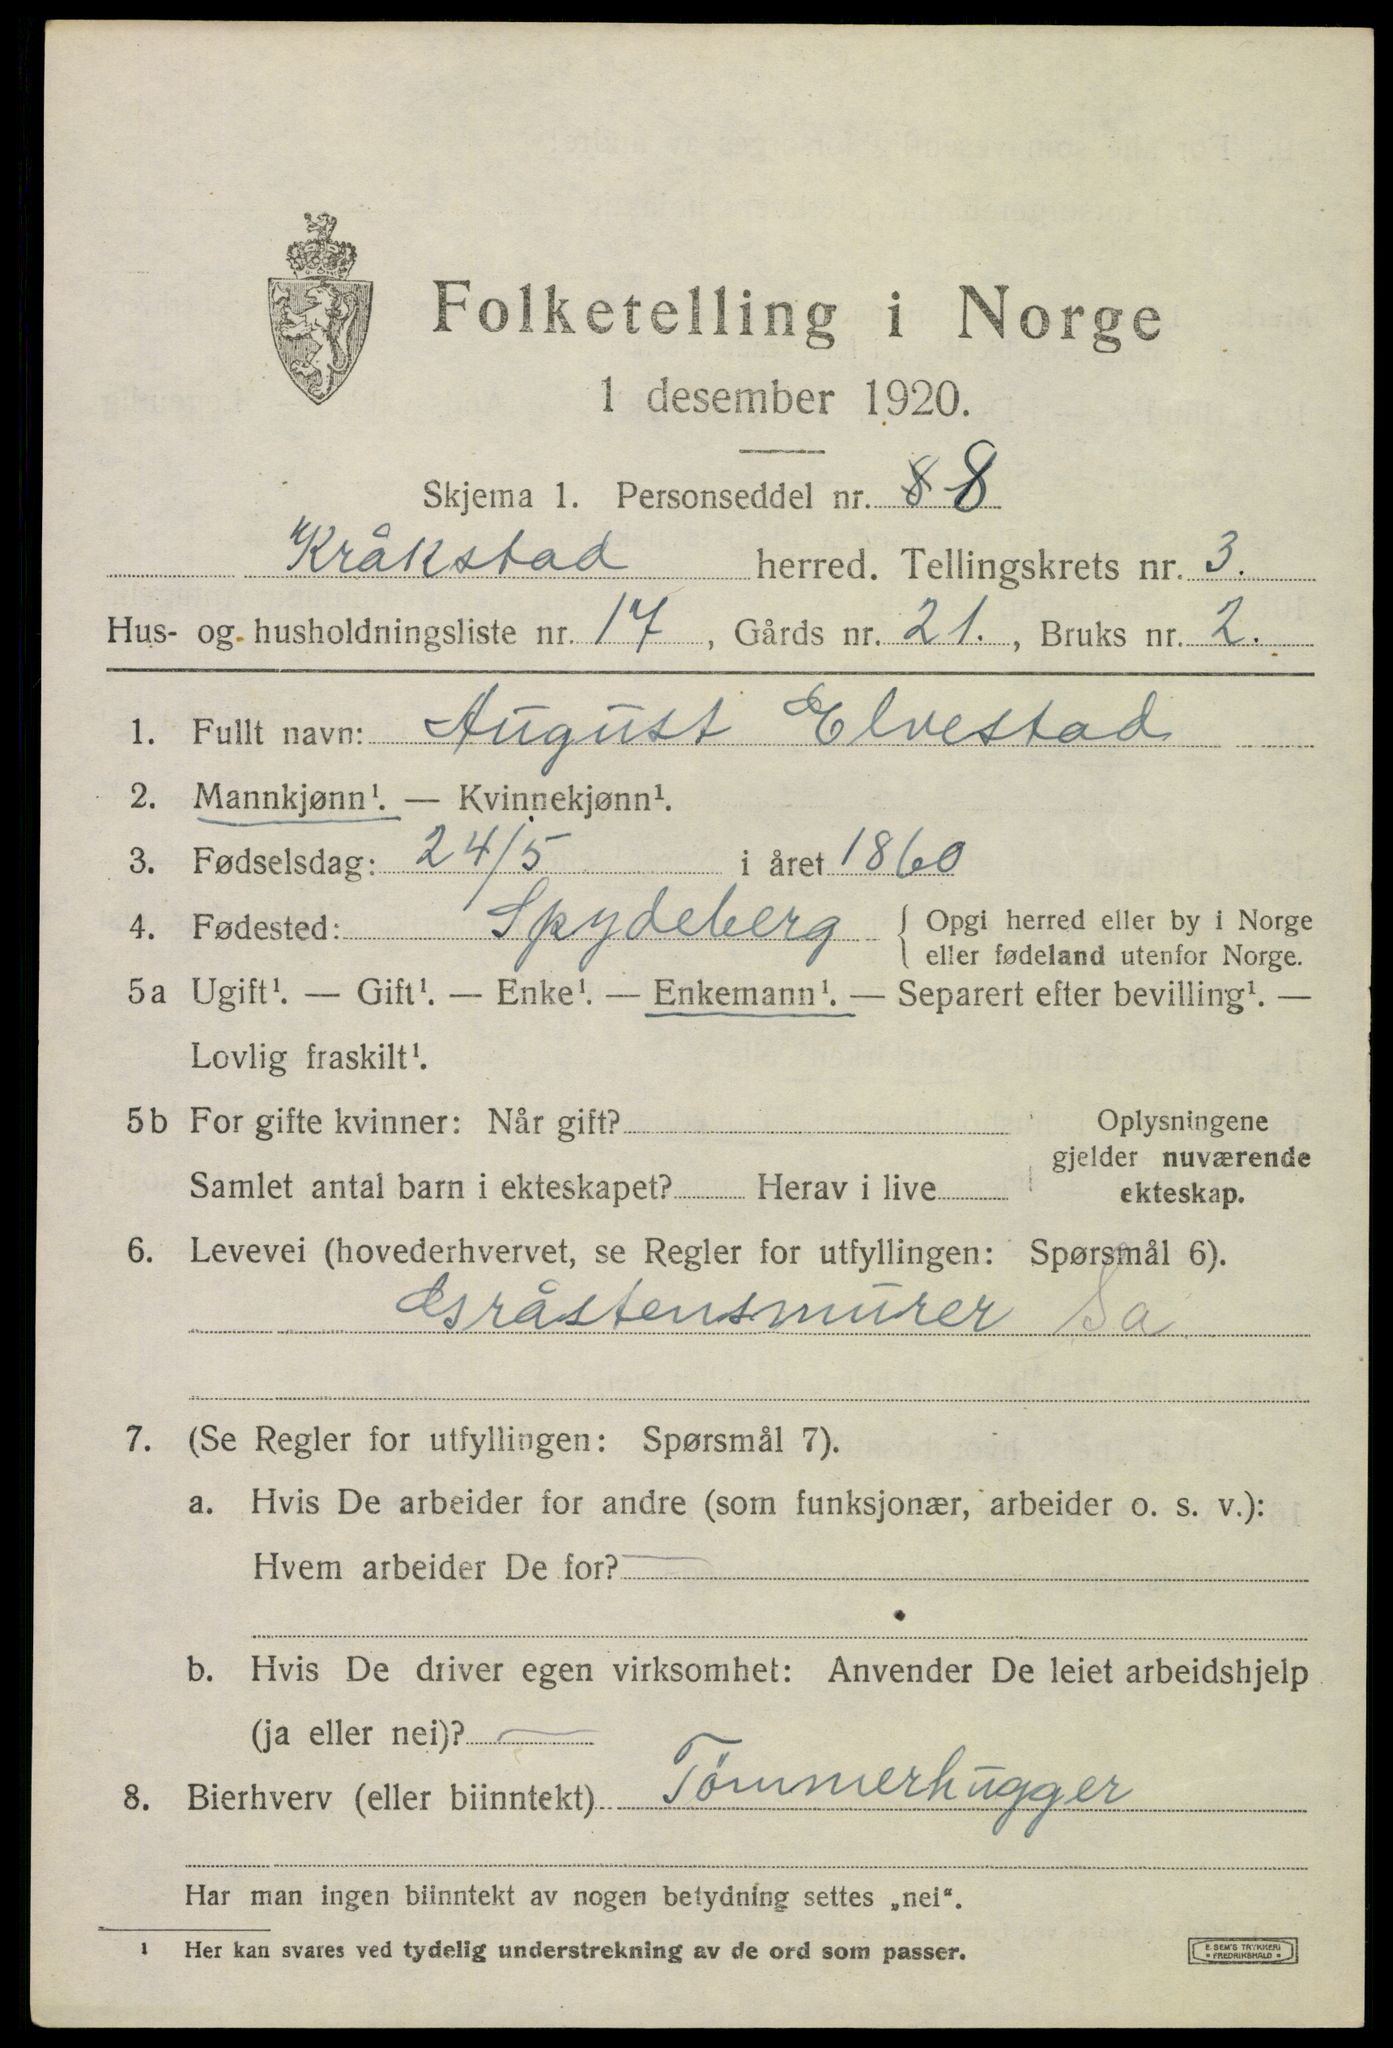 Folketelling i Norge
1 desember 1920.
Skjema 1. Personseddel nr. 8 8
Kråkstad herred. Tellingskrets nr. 3.
Hus- og husholdningsliste nr. 17, Gårds nr. 21., Bruks nr. 2.
1. Fullt navn: August Elvestad
2. Mannkjønn¹. — Kvinnekjønn¹.
3. Fødselsdag: 24/5 i året 1860
4. Fødested: Spydeberg { Opgi herred eller by i Norge
eller fødeland utenfor Norge.
5a Ugift¹. — Gift¹. — Enke¹. — Enkemann¹. — Separert efter bevilling¹. —
Lovlig fraskilt¹.
5b For gifte kvinner: Når gift?
Samlet antal barn i ekteskapet? Herav i live
Oplysningene
gjelder nuværende
ekteskap.
6. Levevei (hovederhvervet, se Regler for utfyllingen: Spørsmål 6).
Gråstensmurer Sa
7. (Se Regler for utfyllingen: Spørsmål 7).
a. Hvis De arbeider for andre (som funksjonær, arbeider o. s. v.):
Hvem arbeider De for? —
b. Hvis De driver egen virksomhet: Anvender De leiet arbeidshjelp
(ja eller nei)? —
8. Bierhverv (eller biinntekt) Tømmerhugger
Har man ingen biinntekt av nogen betydning settes „nei“.
¹ Her kan svares ved tydelig understrekning av de ord som passer.
E. SEM'S TRYKKERI
* FREDRIKSHALD *